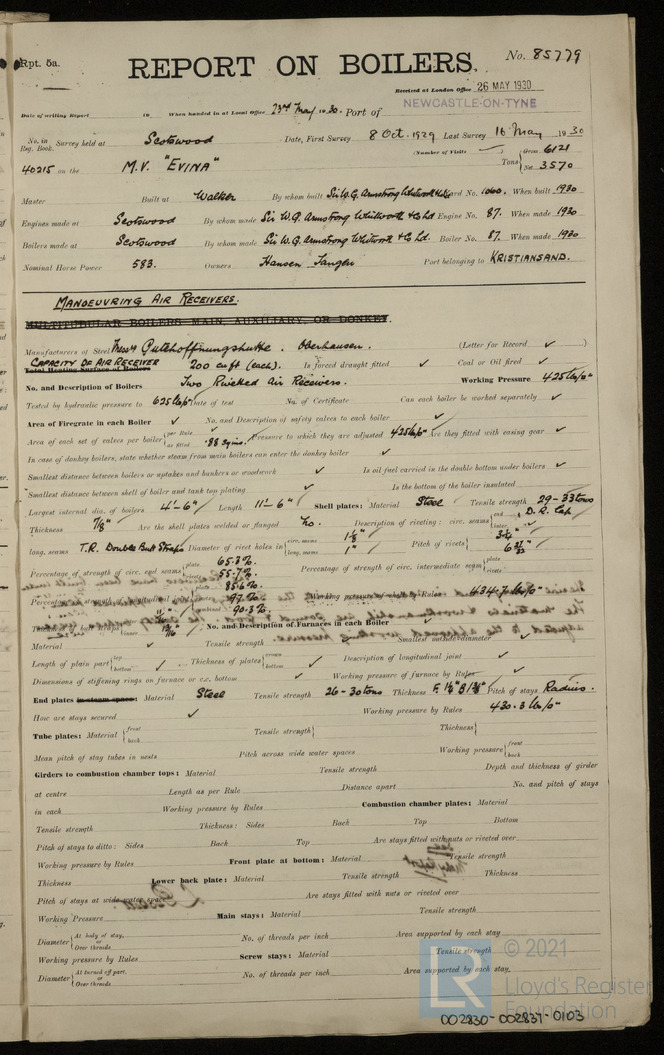 Rpt. 5a.
REPORT ON BOILERS.
No. 85779
Received at London Office 26 MAY 1930
NEWCASTLE-ON-TYNE
Date of writing Report 19 When handed in at Local Office 23rd May 1930. Port of
No. in Reg. Book. Survey held at Scotswood Date, First Survey 8 Oct. 1929 Last Survey 16 May 1930
(Number of Visits )
40215 on the M.V. "EVINA" Tons Gross 6121 Net 3570
Master Built at Walker By whom built Sir W.G. Armstrong Whitworth Yard No. 1060. When built 1930
Engines made at Scotswood By whom made Sir W.G. Armstrong Whitworth & Co Ld Engine No. 87. When made 1930
Boilers made at Scotswood By whom made Sir W.G. Armstrong Whitworth & Co Ld. Boiler No. 87. When made 1930
Nominal Horse Power 583. Owners Hansen Tangen Port belonging to KRISTIANSAND.
MANOEUVRING AIR RECEIVERS.
MULTITUBULAR BOILERS MAIN, AUXILIARY, OR DONKEY.
Manufacturers of Steel Messrs Gutehoffnungshutte. Oberhausen. (Letter for Record ✓ )
CAPACITY OF AIR RECEIVER
Total Heating Surface of Boilers 200 cu ft (each). Is forced draught fitted ✓ Coal or Oil fired ✓
No. and Description of Boilers Two Riveted Air Receivers. Working Pressure 425 lbs/□"
Tested by hydraulic pressure to 625 lbs/□" Date of test No. of Certificate Can each boiler be worked separately ✓
Area of Firegrate in each Boiler ✓ No. and Description of safety valves to each boiler ✓
Area of each set of valves per boiler per Rule as fitted .88 sq ins. Pressure to which they are adjusted 425 lbs/□" Are they fitted with easing gear ✓
In case of donkey boilers, state whether steam from main boilers can enter the donkey boiler ✓
Smallest distance between boilers or uptakes and bunkers or woodwork ✓ Is oil fuel carried in the double bottom under boilers ✓
Smallest distance between shell of boiler and tank top plating ✓ Is the bottom of the boiler insulated
Largest internal dia. of boilers 4'-6" Length 11'-6" Shell plates: Material Steel Tensile strength 29-33 tons
Thickness 7/8" Are the shell plates welded or flanged No. Description of riveting: circ. seams end D.R. Lap inter.
long. seams T.R. Double Butt Straps Diameter of rivet holes in circ. seams 1 1/8" long. seams 1" Pitch of rivets 3 1/4" 6 27/32
Percentage of strength of circ. end seams plate 65.3% rivets 55.7% Percentage of strength of circ. intermediate seam plate rivets
Percentage of strength of longitudinal joint plate 85.6% rivets 97% combined 90.3% Working pressure of shell by Rules 434.7 lbs/□"
Thickness of butt straps outer 11/16 inner 13/16 No. and Description of Furnaces in each Boiler ✓
Material ✓ Tensile strength Smallest outside diameter ✓
Length of plain part top bottom ✓ Thickness of plates crown bottom ✓ Description of longitudinal joint ✓
Dimensions of stiffening rings on furnace or c.c. bottom ✓ Working pressure of furnace by Rules ✓
End plates in steam space: Material Steel Tensile strength 26-30 tons Thickness Pitch of stays Radius.
How are stays secured ✓ Working pressure by Rules 430.3 lbs/□"
Tube plates: Material front back Tensile strength Thickness
Mean pitch of stay tubes in nests Pitch across wide water spaces Working pressure front back
Girders to combustion chamber tops: Material Tensile strength Depth and thickness of girder
at centre Length as per Rule Distance apart No. and pitch of stays
in each Working pressure by Rules Combustion chamber plates: Material
Tensile strength Thickness: Sides Back Top Bottom
Pitch of stays to ditto: Sides Back Top Are stays fitted with nuts or riveted over
Working pressure by Rules Front plate at bottom: Material Tensile strength
Thickness Lower back plate: Material Tensile strength Thickness
Pitch of stays at wide water space Are stays fitted with nuts or riveted over
Working Pressure Main stays: Material Tensile strength
Diameter At body of stay, or Over threads. No. of threads per inch Area supported by each stay
Working pressure by Rules Screw stays: Material Tensile strength
Diameter At turned off part. or Over threads. No. of threads per inch Area supported by each stay.
LR © 2021
Lloyd's Register
Foundation
002830-002837-0103